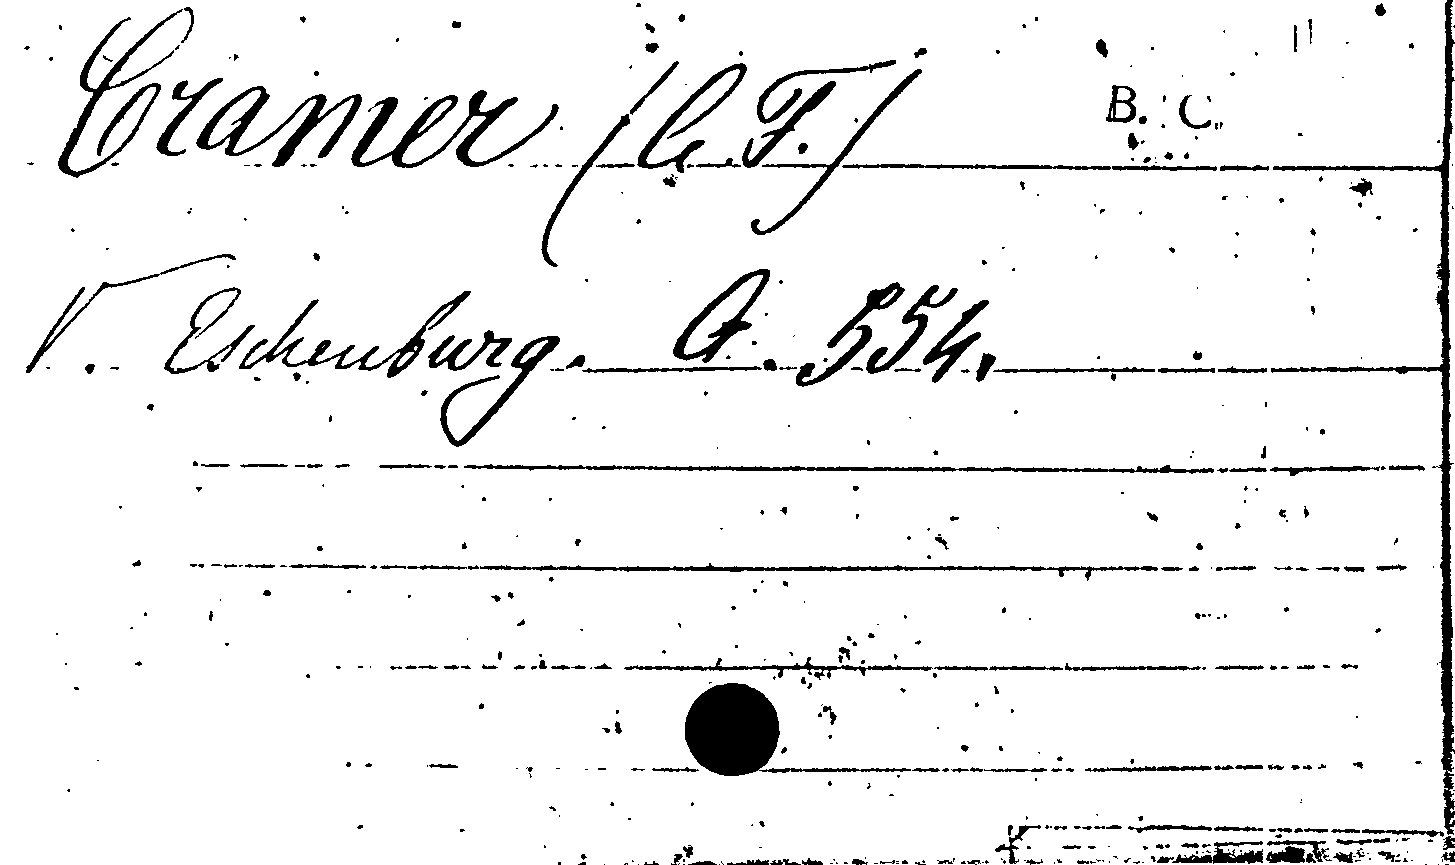 Cramer (C. F.) B. C.
V. Eschenburg. A. 554.